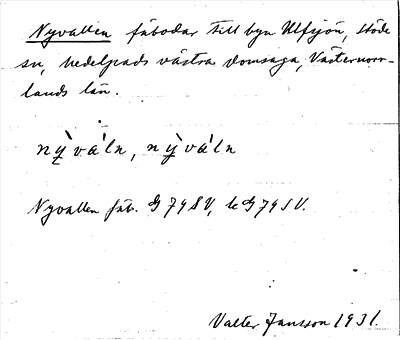 Nyvallen fäbodar till byn Ulfsjön, Stöde
sn, Medelpads västra domsaga, Västernorr-
lands län.
ny̆̀vá'ln, ny̆̀vá'ln
Nyvallen fäb. G 74 SV, k G 74 SV.
Valter Jansson 1931.